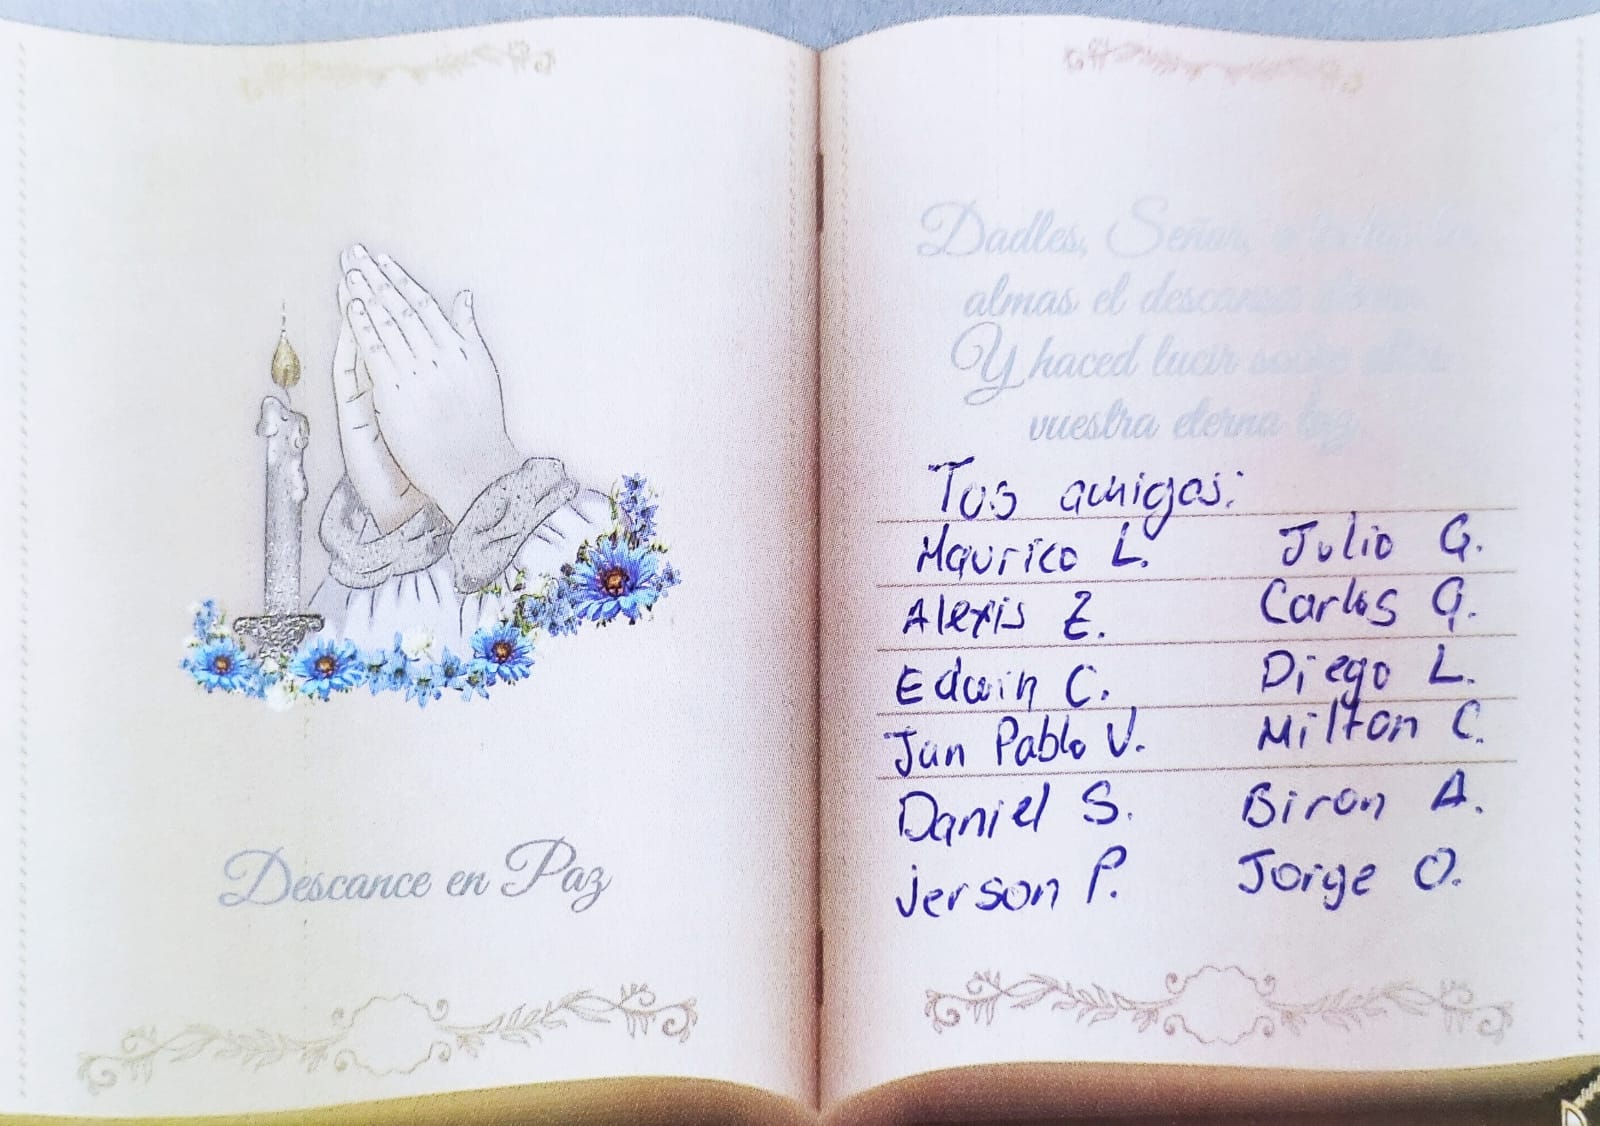 Descance en Paz
Dadles, Señor, a todas las
almas el descanso eterno
Y haced lucir sobre ellas
vuestra eterna luz
Tus amigos:
Maurico L. Julio G.
Alexis Z. Carlos G.
Edwin C. Diego L.
Jun Pablo V. Milton C.
Daniel S. Biron A.
Jerson P. Jorge O.